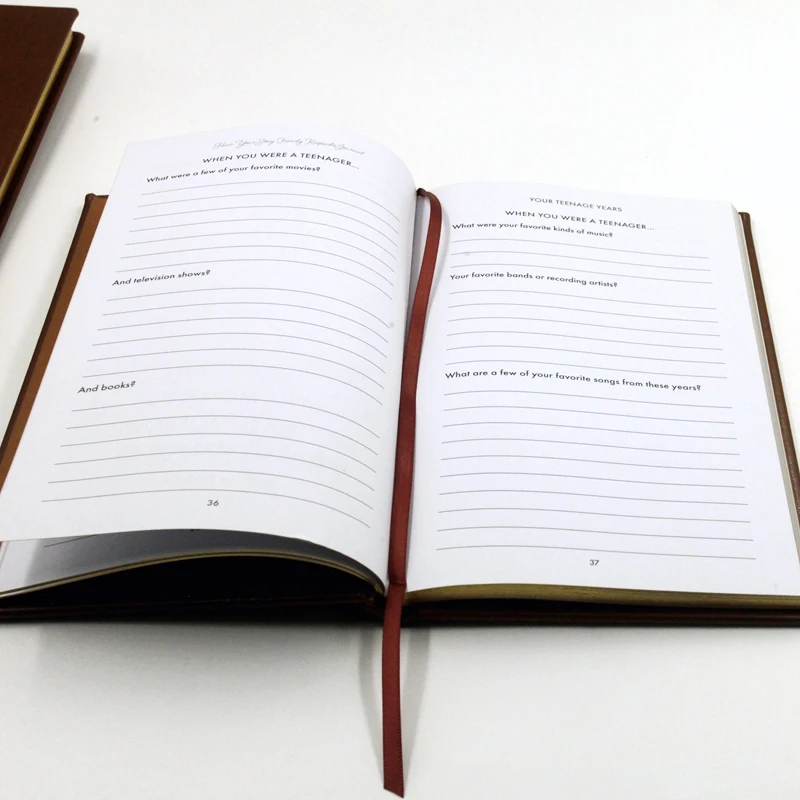 Hear Your Story Family Keepsake Journal
WHEN YOU WERE A TEENAGER...
What were a few of your favorite movies?
And television shows?
And books?
36
YOUR TEENAGE YEARS
WHEN YOU WERE A TEENAGER...
What were your favorite kinds of music?
Your favorite bands or recording artists?
What are a few of your favorite songs from these years?
37